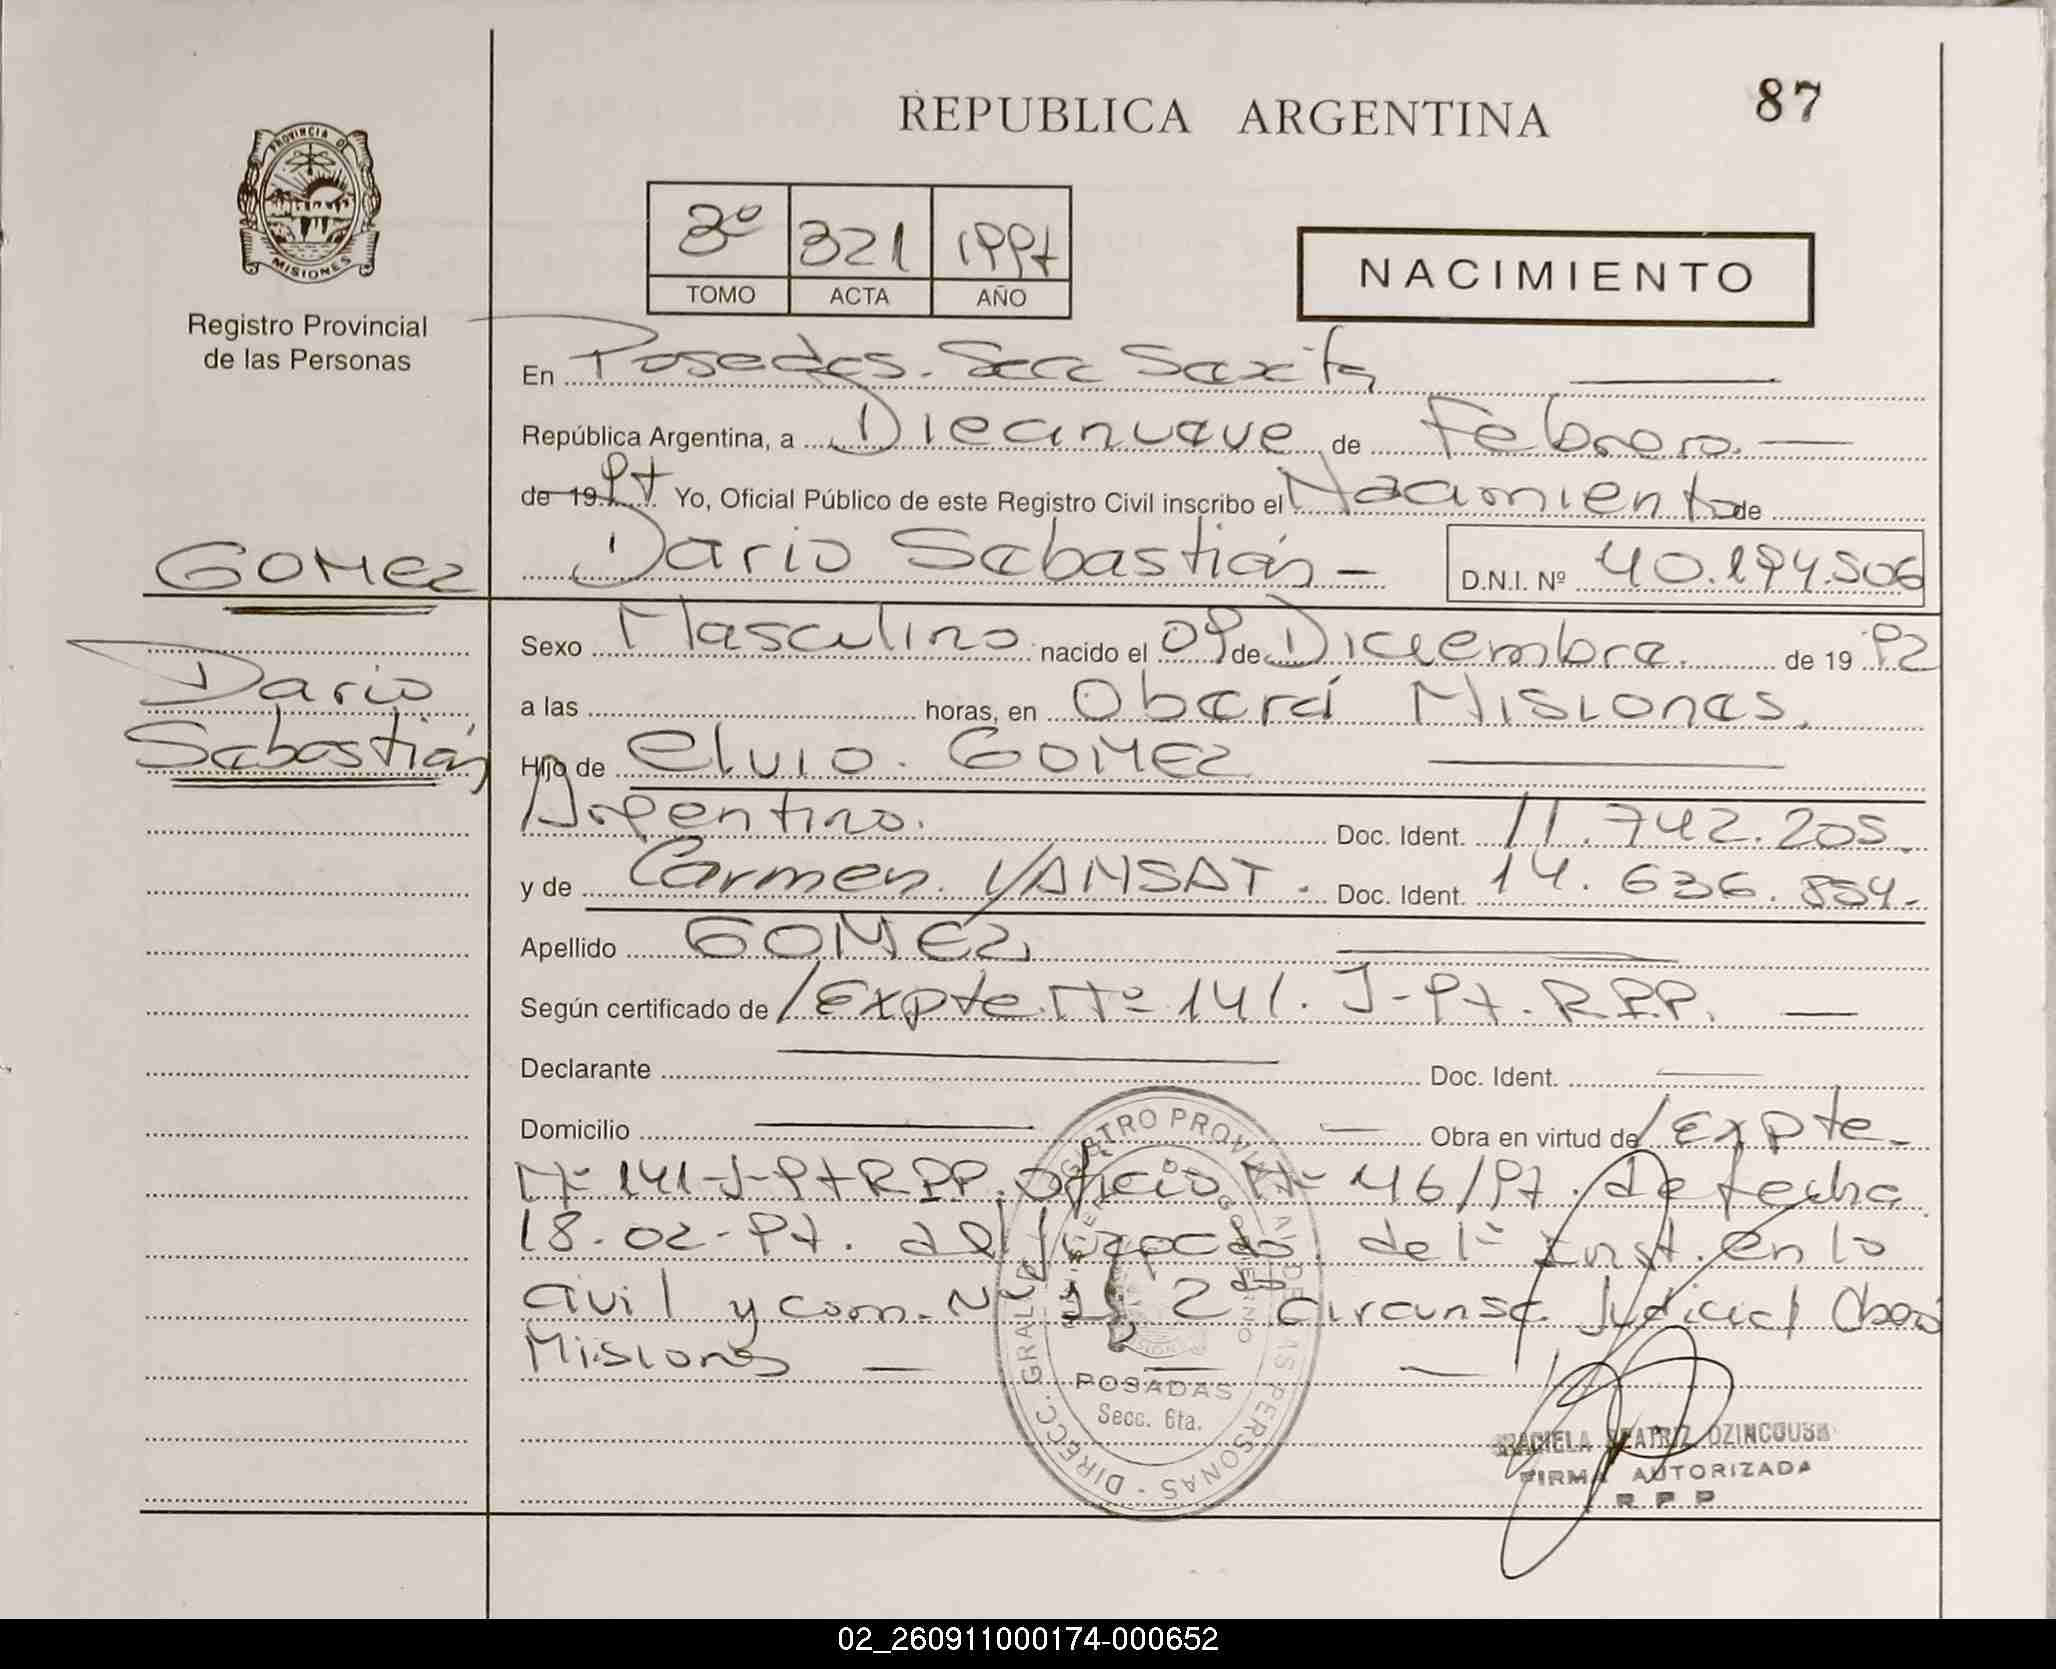 REPUBLICA ARGENTINA
87
PROVINCIA DE MISIONES
Registro Provincial
de las Personas
3º 321 1997
TOMO ACTA AÑO
NACIMIENTO
En Posadas. Secc Sexta
República Argentina, a Diecinueve de Febrero.
de 1997 Yo, Oficial Público de este Registro Civil inscribo el Nacimiento de
GOMEZ
Dario Sebastián - D.N.I. Nº 40.194.506
Dario
Sebastián
Sexo Masculino nacido el 09 de Diciembre. de 1992
a las horas, en Oberá Misiones.
Hijo de Elvio. GOMEZ
Argentino. Doc. Ident. 11.742.205.
y de Carmen. VANSAT. Doc. Ident. 14.636.854.-
Apellido GOMEZ,
Según certificado de /Expte. Nº 141. J-97. R.P.P.
Declarante Doc. Ident.
Domicilio Obra en virtud de /Expte-
Nº 141-J-97 RPP. Oficio Nº 46/97. de fecha
18-02-97. del Juzgado. de 1º Inst. en lo
Civil y Com. Nº 2da Circunsc. Judicial Oberá
Misiones
REGISTRO PROVINCIAL DE LAS PERSONAS - DIRECC. GRAL.
POSADAS
Secc. 6ta.
GRACIELA BEATRIZ
FIRMA AUTORIZADA
R P P
02_260911000174-000652